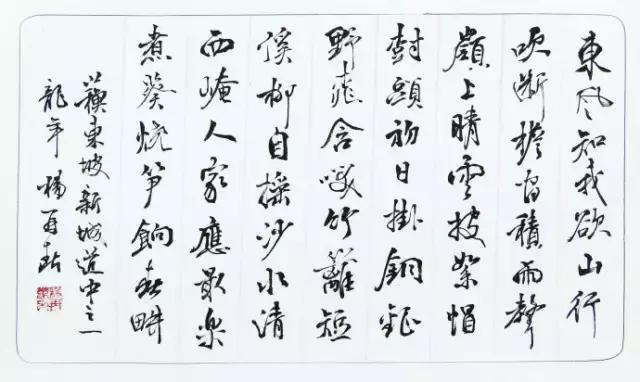 東风知我欲山行
吹断檐间積雨聲
嶺上晴雲披絮帽
樹頭初日掛銅鉦
野桃含笑竹籬短
溪柳自摇沙水清
西崦人家應最樂
煮葵燒笋餉春畊
蘇東坡新城道中之一
龍年 楊再春